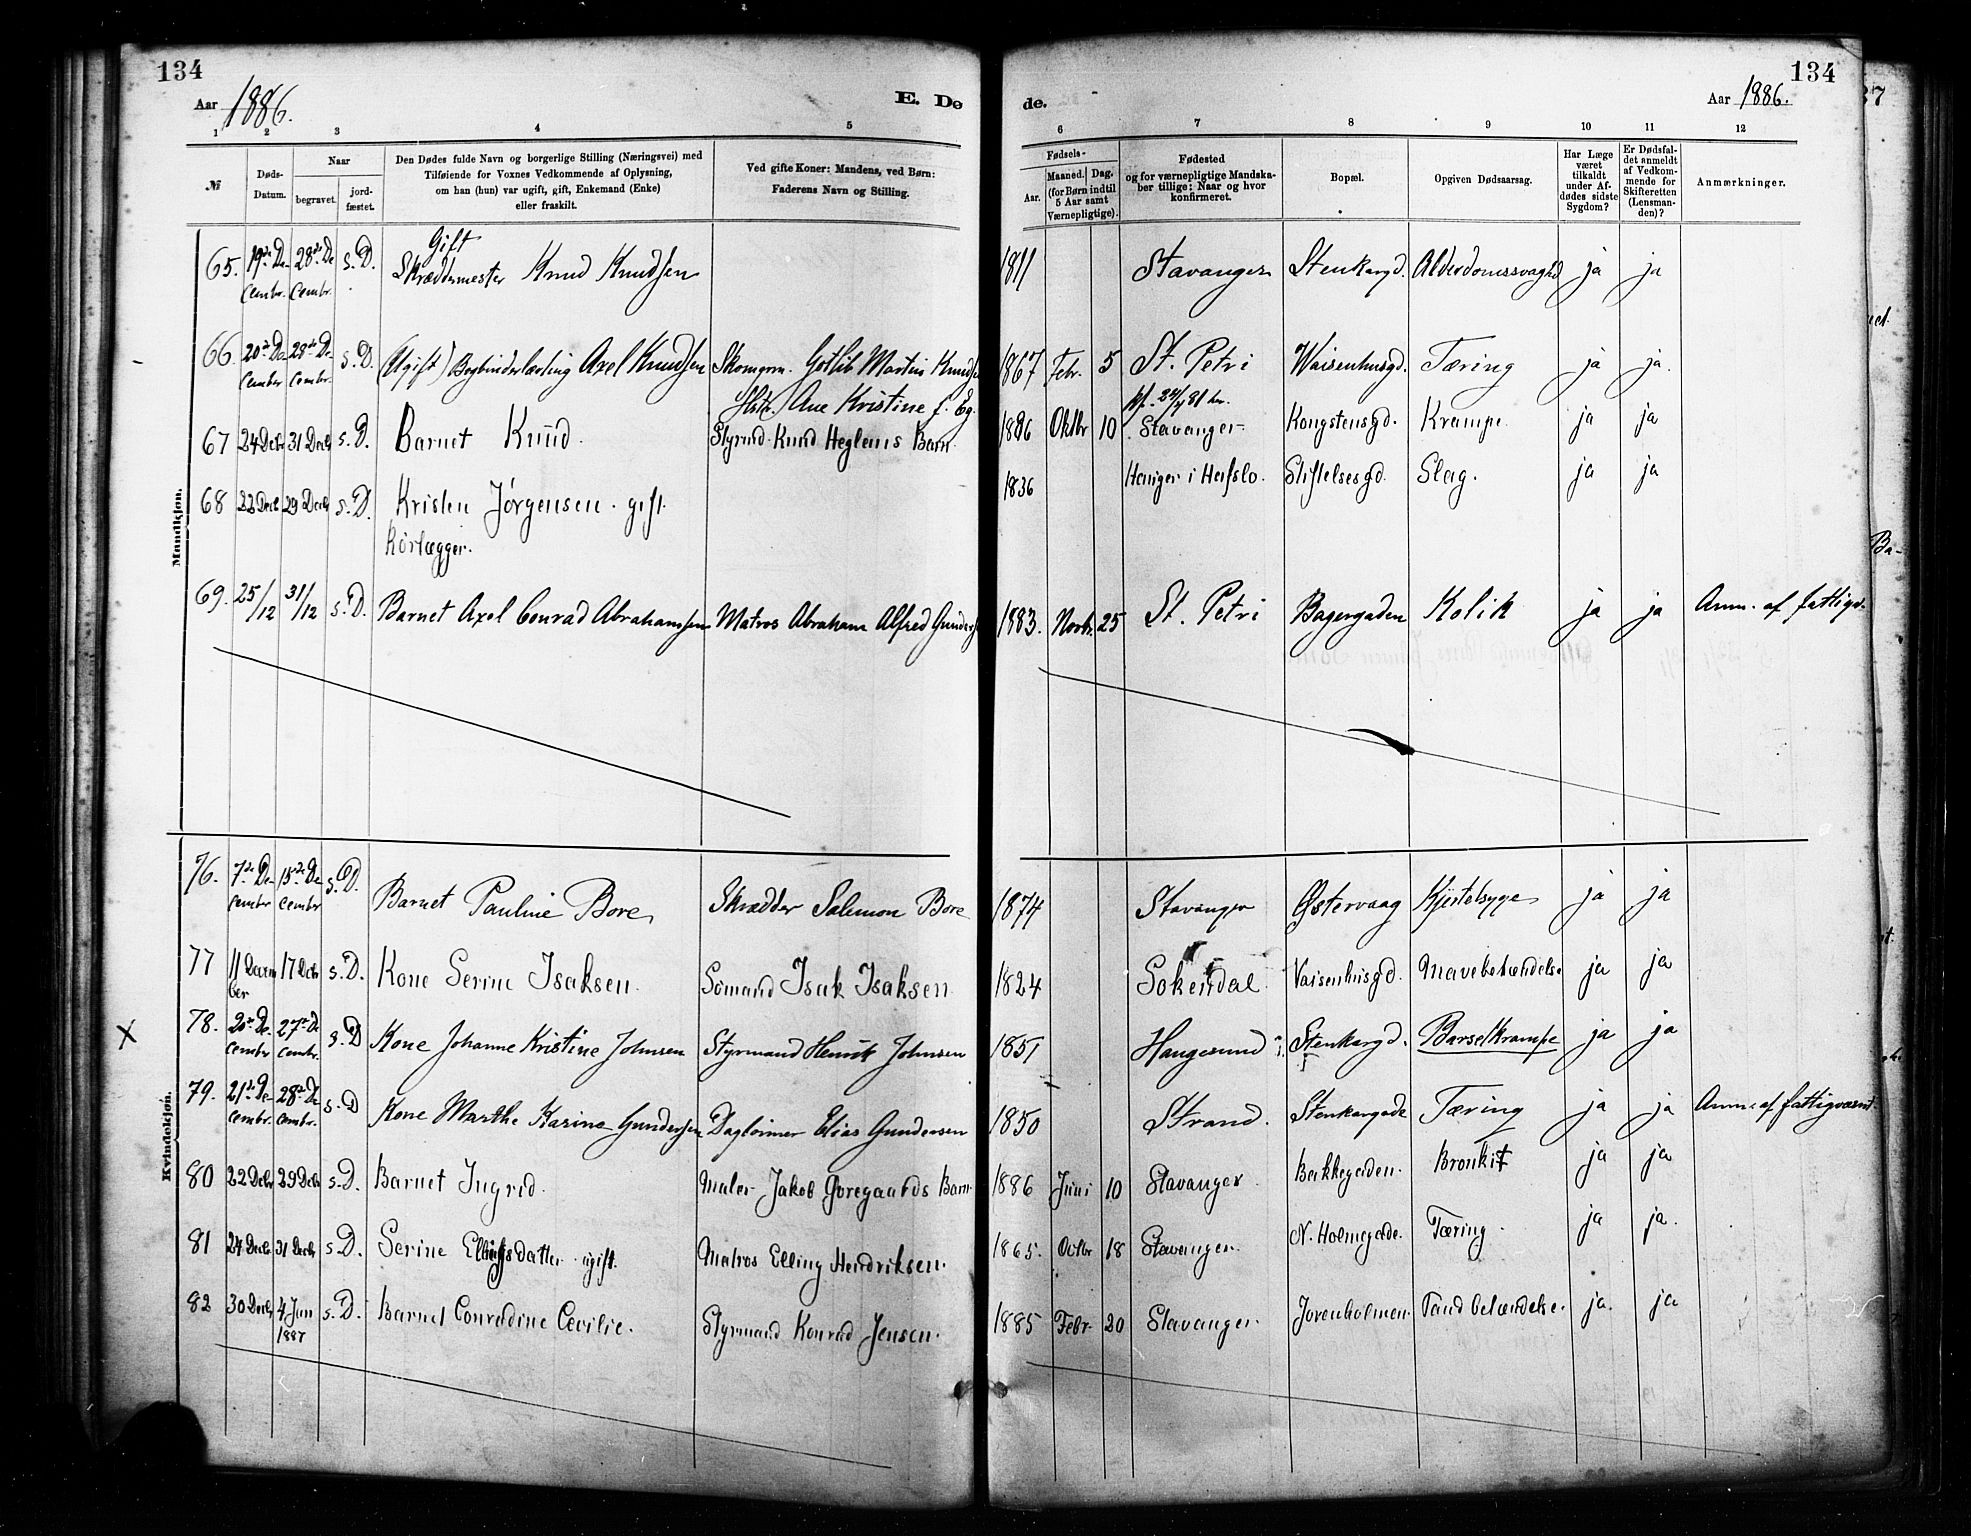 134
134
Aar 1886.
E. De
de.
Aar 1886.
1 2 3 4 5 6 7 8 9 10 11 12
№
Døds-Datum.
Naar
begravet.
jord-fæstet.
Den Dødes fulde Navn og borgerlige Stilling (Næringsvei) med
Tilføiende for Voxnes Vedkommende af Oplysning,
om han (hun) var ugift, gift, Enkemand (Enke)
eller fraskilt.
Ved gifte Koner: Mandens, ved Børn:
Faderens Navn og Stilling.
Fødsels-
Aar.
Maaned. Dag.
(for Børn indtil
5 Aar samt
Værnepligtige).
Fødested
og for værnepligtige Mandska-
ber tillige: Naar og hvor
konfirmeret.
Bopæl.
Opgiven Dødsaarsag.
Har Læge
været
tilkaldt
under Af-
dødes sidste
Sygdom?
Er Dødsfal-
det anmeldt
af Vedkom-
mende for
Skifteretten
(Lensman-
den)?
Anmærkninger.
Mandkjøn.
65. 19de De- 28de De s. D. Gift 1811 Stavanger Stenkargd. Alderdomssvaghd ja ja
cembr. cembr. Skræddermester Knud Knudsen
66. 20de De- 28de De- s. D. (Ugift) Bogbinderlærling Axel Knudsen Skomgrm. Gotlib Martin Knuds 1867 Febr. 5 St. Petri Waisenhusgd. Tæring ja ja.
cember cembr. Hstr. Ane Kristine f. Eg. kf. 24/4 81 her.
67 24 Decbr 31 Decb s. D. Barnet Knud. Styrmd. Knud Heglems Barn. 1886 Oktbr 10 Stavanger Kongstensgd. Krampe ja ja
68 22 Decb 29 Decb s. D. Kristen Jörgensen. gift. 1836 Heniger i Hafslo. Stiftelsesgd. Slag. ja ja
Rörlægger.
69. 25/12 31/12 s. D. Barnet Axel Conrad Abrahamsen Matros Abraham Alfred Gunders 1883. Novbr. 25 St. Petri Bagergaden Kolik ja ja Anm. af fattigv.
Kvindekjøn.
76. 7de De- 15de De s. D. Barnet Pauline Bore Skrædder Salemon Bore 1874 Stavanger Østervaag Kjertelsyge ja ja
cember cember
77 11 Decem 17 Decbr s. D. Kone Serine Isaksen. Sömand Isak Isaksen 1824 Sokendal. Vaisenhusgd. Mavebetændelse ja ja
ber
X 78. 20de De. 27de De s. D Kone Johanne Kristine Johnsen Styrmand Henrik Johnsen 1851 Haugesund Stenkargd. Barselkrampe ja ja
cember cembr.
79. 21de De- 28de De s. D Kone Marthe Karine Gundersen Dagleiner Elias Gundersen 1850 Strand. Stenkargade Tæring ja ja Anm. af fattigvæsnt.
cembr. cembr.
80 22 Decbr 29 Decb s. D. Barnet Ingrid. Maler Jakob Goregaards Barn. 1886 Juni 10 Stavanger Bakkegaden. Bronkit ja ja
81 24 Decbr 31 Decb s. D. Serine Ellingsdatter ugift. Matros Elling Hendriksen. 1865. Octbr 18 Stavanger. N. Holmegade. Tæring. ja ja.
82 30 Decbr 4 Jan s. D. Barnet Conradine Cecilie. Styrmand Konrad Jensen. 1885 Febr. 20 Stavanger. Jorenholmen. Tandbetændelse. ja. ja
1887